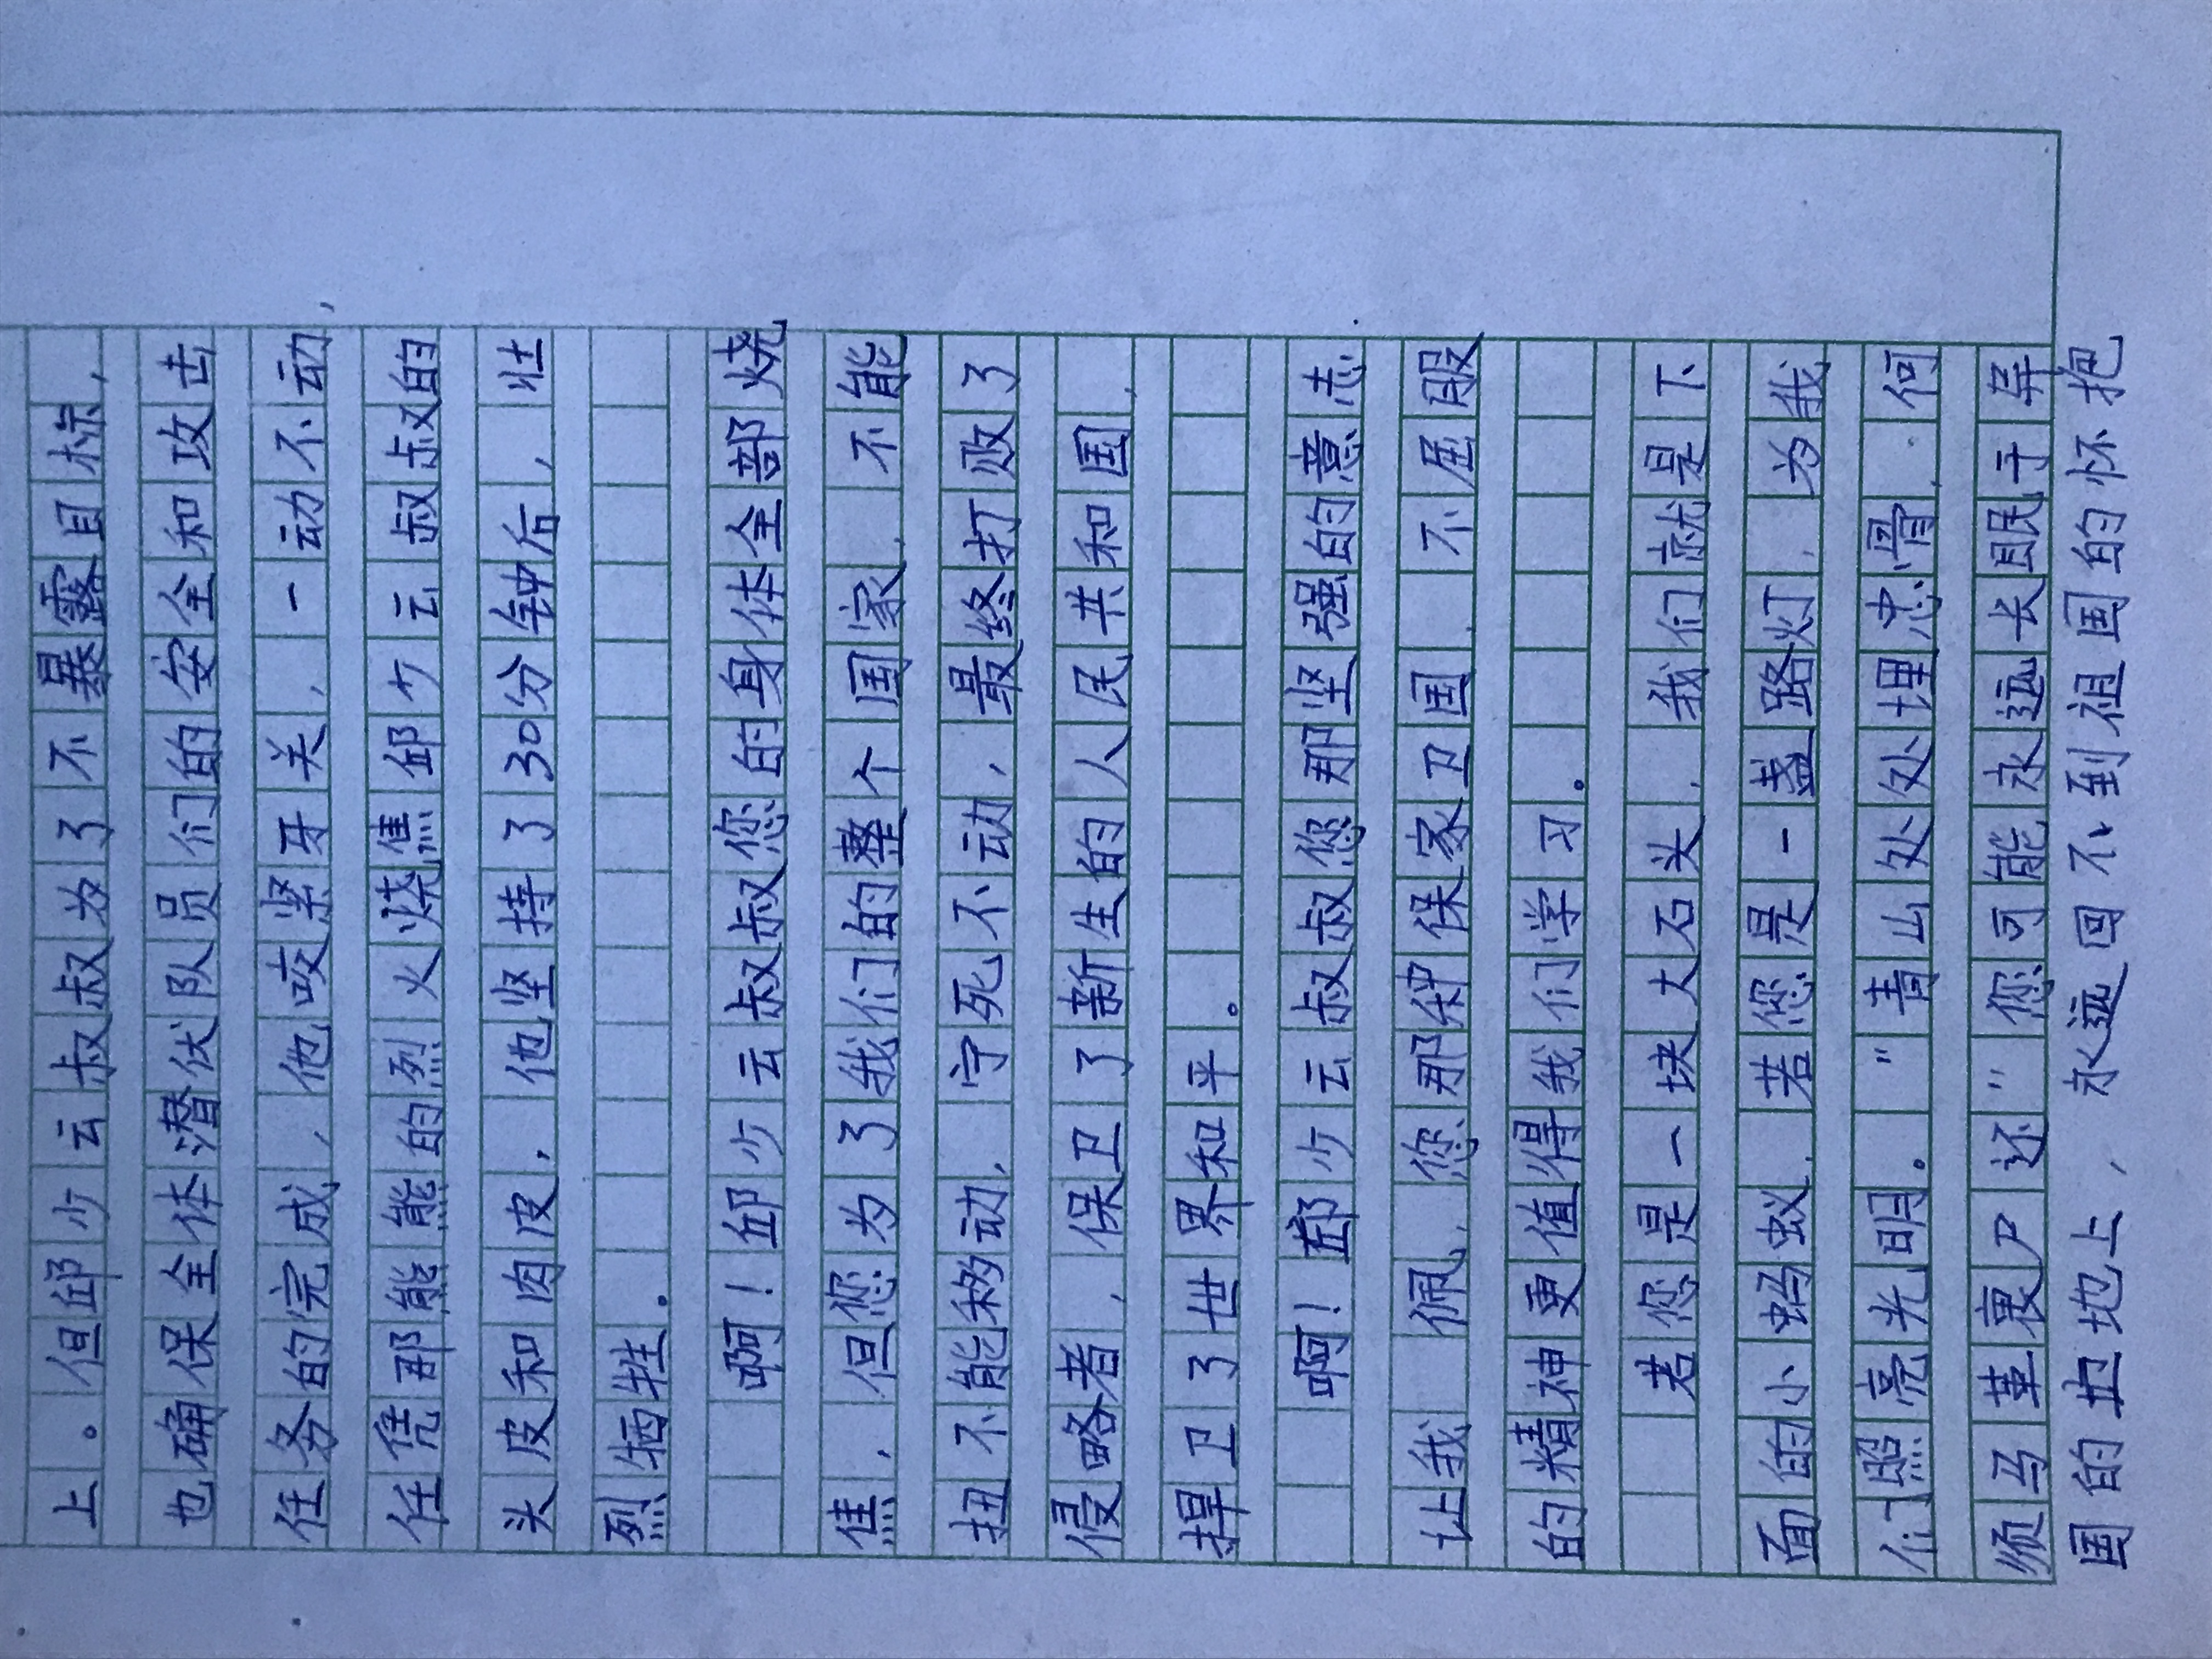 上。但邱少云叔叔为了不暴露目标，
也确保全体潜伏队员们的安全和攻击
任务的完成，他咬紧牙关，一动不动，
任凭那熊熊的烈火烧焦邱少云叔叔的
头皮和肉皮，他坚持了30分钟后，壮
烈牺牲。
啊！邱少云叔叔您的身体全部烧
焦，但您为了我们的整个国家，不能
扭不能移动，宁死不动，最终打败了
侵略者，保卫了新生的人民共和国，
捍卫了世界和平。
啊！邱少云叔叔您那坚强的意志
让我佩，您那种保家卫国，不屈服
的精神更值得我们学习。
若您是一块大石头，我们就是下
面的小蚂蚁，若您是一盏路灯，为我
们照亮光明。"青山处处埋忠骨，何
须马革裹尸还"您可能永远长眠于异
国的土地上，永远回不到祖国的怀抱